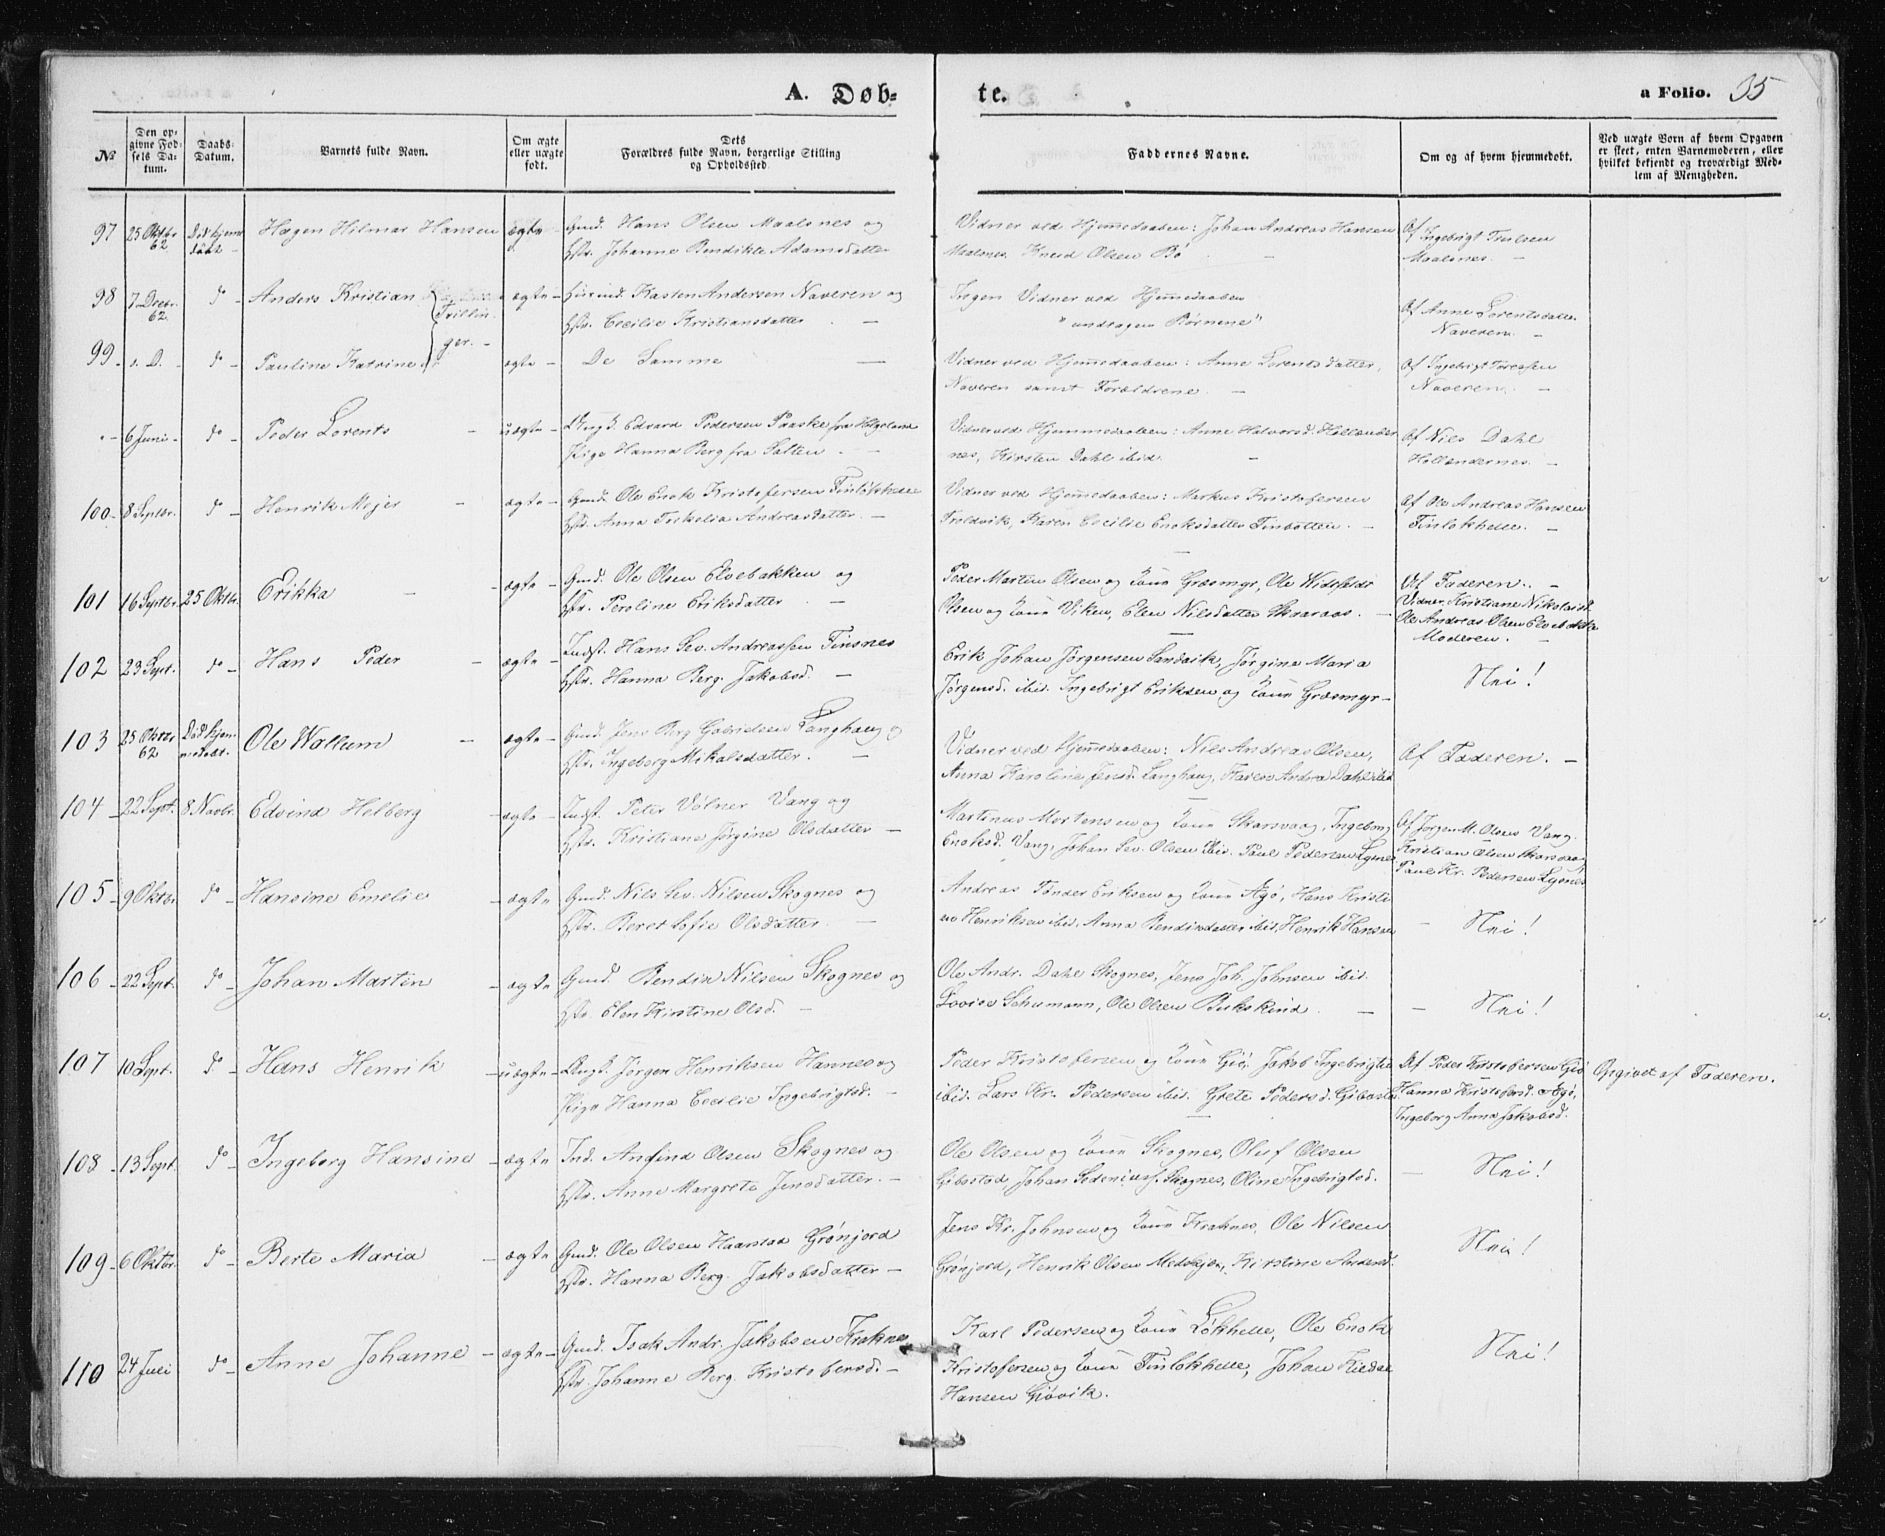 A. Døb- te. a Folio. 35
№
Den op-
givne Fød-
sels Da-
tum.
Daabs-
Datum.
Barnets fulde Navn.
Om ægte
eller uægte
født.
Dets
Forældres fulde Navn, borgerlige Stilling
og Opholdssted.
Faddernes Navne.
Om og af hvem hjemmedøbt.
Ved uægte Born af hvem Opgaven
er skeet, enten Barnemoderen, eller
hvilket bekjendt og troværdigt Med-
lem af Menigheden.
97 25 Oktbr. 62 Død hjemmedøbt Hagen Hilmar Hansen ægte Gmd. Hans Olsen Maalsnes og
Hstr. Johanne Bendikte Adamsdatter
Vidner ved Hjemmedaaben: Johan Andreas Hansen
Maalsnes. Knud Olsen Bø
Af Ingebrigt Trulsen
Maalsnes. –
98 7 Decbr. 62 do – Anders Kristian ægte – Husmd. Kasten Andersen Naveren og
Hstr. Cecilie Kristiansdatter –
Trillin-
ger. –
Ingen Vidner ved Hjemmedaaben
"undtagen Børnene"
Af Anne Lorentsdatter
Naveren. –
99 s. D. do – Pauline Katrine ægte – De Samme –
Vidner ved Hjemmedaaben: Anne Lorentsdatter,
Naveren samt Forældrene –
Af Ingebrigt
Naveren. –
" – 6 Juni – do – Peder Lorents – uægte – Ungk. Edvard Pedersen Paaske fra Helgeland
Pige Hanna Berg fra Salten. –
Vidner ved Hjemmedaaben: Anne Halvorsd. Hollænder
nes, Kirsten Dahl ibid. –
Af Nils Dahl
Hollændernes. –
100 – 8 Septbr. do – Henrik Mejer – ægte – Gmd. Ole Enok Kristofersen Finlökhelle
Hstr. Anna Andreasdatter. –
Vidner ved Hjemmedaaben: Markus Kristofersen
Trolvik, Karen Cecilie Enoksdatter Finbotten. –
Af Ole Andreas Hansen
Finlökhelle. –
101 16 Septbr. 25 Oktbr. Erikka – ægte – Gmd. Ole Olsen Elvebakken og
Hstr. Peroline Eriksdatter –
Peder Martin Olsen og Kone Græsmyr, Ole
Olsen og Kone Viken, Elen Nilsdatter –
Af Faderen. –
Vidner, Kristiane Nikolaisd.
Ole Andreas Olsen Elvebakken
Moderen. –
102 23 Sept. do – Hans Peder – ægte – Indst. Hans Sev. Andreassen Finsnes
Hstr. Hanna Berg. Jakobsd. –
Erik Johan Jörgensen Sandvik, Jörgine Maria
Jörgensd. ibid. Ingebrigt Eriksen og Kone Græsmyr –
Nei!
103 25 Oktbr. 62 Død hjem-
medøbt. Ole Walkum – ægte – Gmd. Jens Berg Gabrielsen Langhaug og
Hstr. Ingeborg Mikalsdatter. –
Vidner ved Hjemmedaaben: Nils Andreas Olsen,
Anna Karoline Jensd. Langhaug, Karen Andrea Dahl ibid
Af Faderen. –
104 22 Sept. 8 Novbr. Edvind Helberg – ægte – Indst. Peter Völner Vang og
Hstr. Kristiane Jörgine Olsdatter –
Martinus Mortensen og Kone Skarsvaag, Ingeborg
Enoksd. Vang, Johan Sev. Olsen ibid. Paul Pedersen Lysnes
Af Jörgen M. Olsen Vang.
Kristian Olsen Skarsvaag
Paul Kr. Pedersen Lysnes
105 – 9 Oktbr. do – Hansine Emelie – ægte – Gmd. Nils Sev. Nilsen Skognes og
Hstr. Beret Sofie Olsdatter. –
Andreas Tönder Eriksen og Kone Agö, Hans Kristi-
an Henriksen ibid. Anna Bendixdatter ibid. Henrik Hansen
– Nei!
106 – 22 Sept. do – Johan Martin – ægte – Gmd. Bendix Nilsen Skognes og
Hstr. Elen Kirstine Olsd. –
Ole Andr. Dahl Skognes, Jens Joh. Johnsen ibid.
Lovise Schumann, Ole Olsen Bukskind. –
– Nei!
107 – 10 Sept. do – Hans Henrik – uægte – Ungk. Jörgen Henriksen Hannes og
Pige Hanna Cecilie Ingebrigtsd. –
Peder Kristofersen og Kone Giö, Jakob Ingebrigtsen
ibid. Lars Kr. Pedersen ibid. Grete Pedersd. Gibostad
Af Peder Kristofersen Giö
Hanna Kristofersd. Agö,
Ingeborg Anna Jakobsd.
Opgivet af Faderen.
108 – 13 Sept. do – Ingeborg Hansine – ægte Ind. Anfind Olsen Skognes og
Hstr. Anne Margrete Jensdatter. –
Ole Olsen og Kone Skognes, Oluf Olsen
Gibostad, Johan Skognes, Oline Ingebrigtsd.
– Nei!
109 – 6 Oktbr. do – Berte Maria – ægte Gmd. Ole Olsen Haarstad Grönjord
Hstr. Hanna Berg. Jakobsdatter –
Jens Kr. Johnsen og Kone Kraknes, Ole Nilsen
Grönjord, Henrik Olsen Medbyen, Kirstine Andersd.
Nei!
110 24 Juli do – Anne Johanne – ægte – Gmd. Isak Andr. Jakobsen Kraknes
Hstr. Johanne Berg. Kristofersd. –
Karl Pedersen og Kone Lökhelle, Ole Enok
Kristofersen og Kone Finlökhelle, Johan
Hansen Gjövik.
Nei!